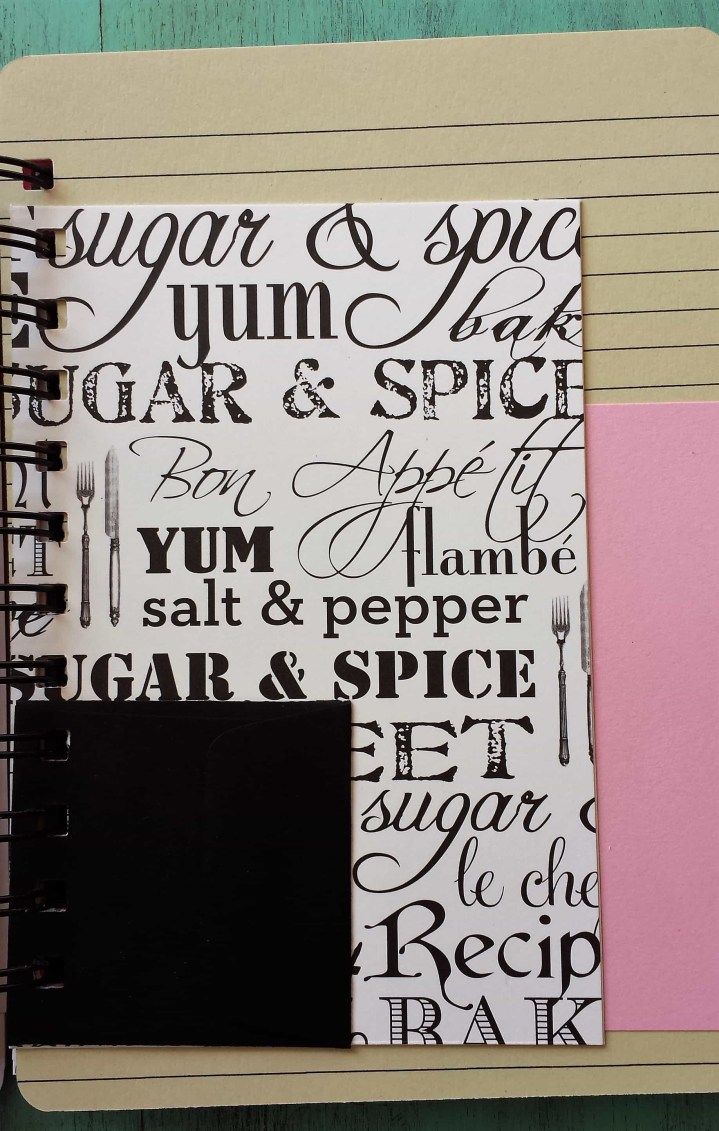 sugar & spic
yum
bak
SUGAR & SPICE
Bon Appétit
YUM
flambé
salt & pepper
SUGAR & SPICE
EET
sugar &
le che
Recip
BAK